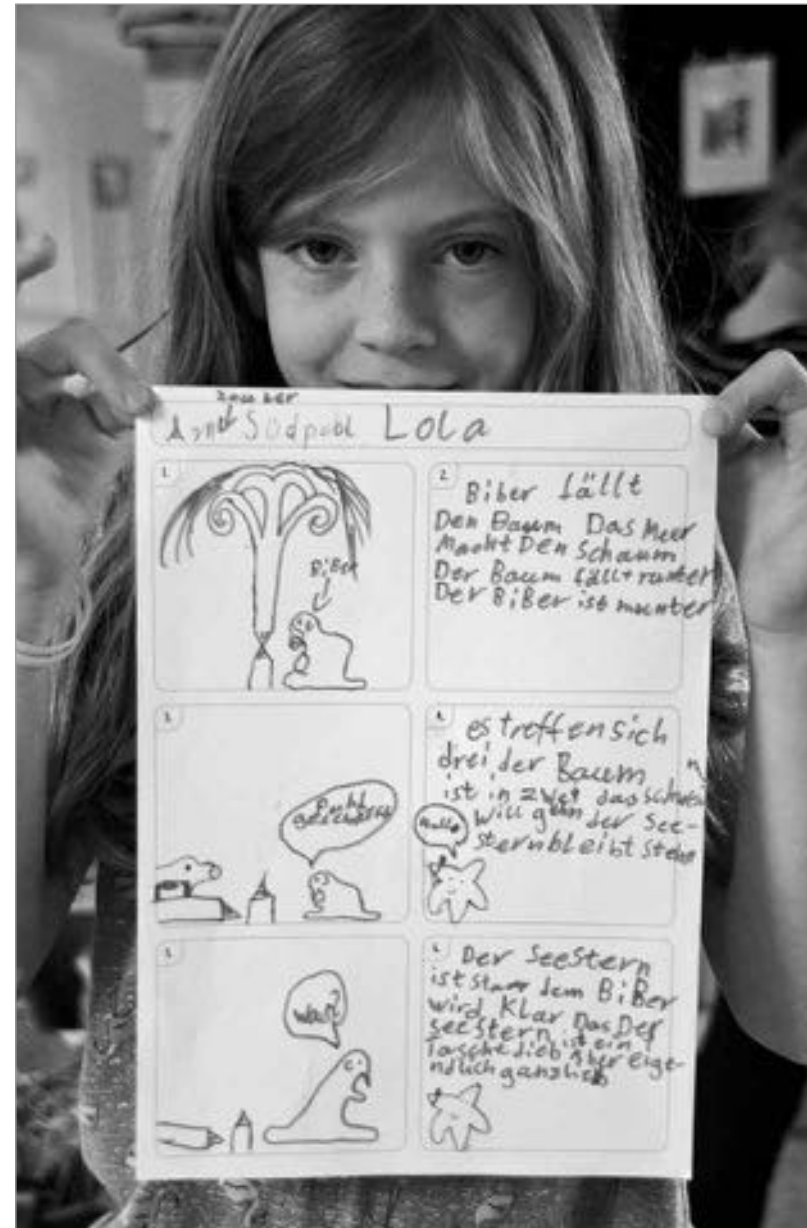 zauber
Südpohl Lola
1.
BiBer
2.
Biber fällt
Den Baum Das Meer
Macht Den Schaum
Der Baum fällt runter
Der BiBer ist munter
3.
es treffen sich
drei der Baum
ist in zwei das
will gehn der See-
stern bleibt stehn
Hallo
was?
Der Seestern
ist starr dem BiBer
wird Klar Das Der
seestern ist ein
taschedieb Aber eige-
ndlich ganz lieb